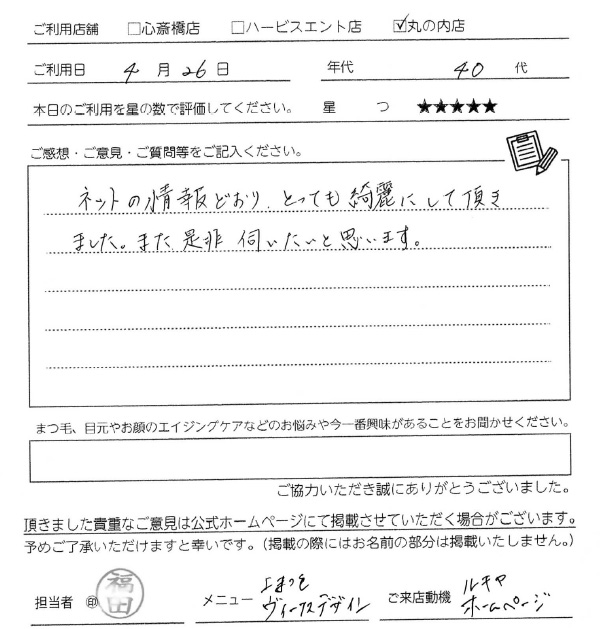 ご利用店舗 □心斎橋店 □ハービスエント店 ☑丸の内店
ご利用日 4月26日 年代 40代
本日のご利用を星の数で評価してください。 星 つ ★★★★★
ご感想・ご意見・ご質問等をご記入ください。
ネットの情報どおり、とっても綺麗にして頂き
ました。また是非伺いたいと思います。
まつ毛、目元やお顔のエイジングケアなどのお悩みや今一番興味があることをお聞かせください。
ご協力いただき誠にありがとうございました。
頂きました貴重なご意見は公式ホームページにて掲載させていただく場合がございます。
予めご了承いただけますと幸いです。（掲載の際にはお名前の部分は掲載いたしません。）
担当者 ㊞ 福田 メニュー 上まつモ ご来店動機 ルキヤ
ヴィーナスデザイン ホームページ